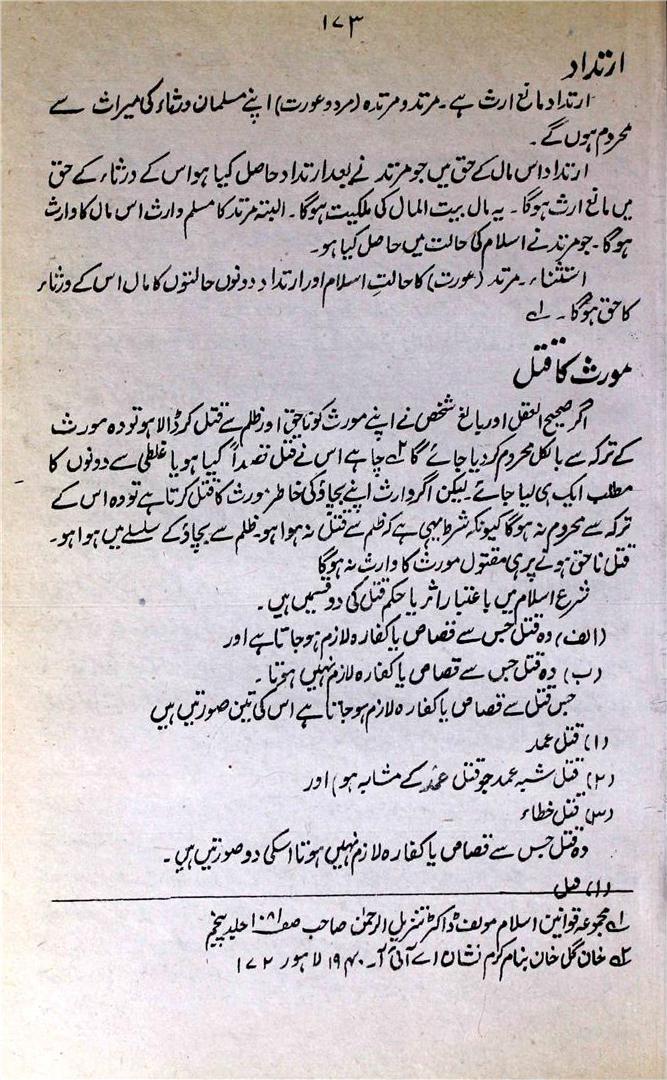 ۱۷۳
ارتداد
ارتداد مانع ارث ہے۔ مرتد و مرتدہ (مرد و عورت) اپنے مسلمان ورثاء کی میراث سے
محروم ہوں گے۔
ارتداد اس مال کے حق میں جو مرتد نے بعد ارتداد حاصل کیا ہو اس کے ورثاء کے حق
میں مانع ارث ہوگا۔ یہ مال بیت المال کی ملکیت ہوگا۔ البتہ مرتد کا مسلم وارث اس مال کا وارث
ہوگا۔ جو مرتد نے اسلام کی حالت میں حاصل کیا ہو۔
استثناء۔ مرتد (عورت) کا حالتِ اسلام اور ارتداد دونوں حالتوں کا مال اس کے ورثاء
کا حق ہوگا۔ ۱ے
مورث کا قتل
اگر صحیح العقل اور بالغ شخص نے اپنے مورث کو ناحق اور ظلم سے قتل کر ڈالا ہو تو وہ مورث
کے ترکہ سے بالکل محروم کر دیا جائے گا ۲ے چاہے اس نے قتل قصداً کیا ہو یا غلطی سے دونوں کا
مطلب ایک ہی لیا جائے۔ لیکن اگر وارث اپنے بچاؤ کی خاطر مورث کا قتل کرتا ہے تو وہ اس کے
ترکہ سے محروم نہ ہوگا کیونکہ شرط یہی ہے کہ ظلم سے قتل نہ ہوا ہو۔ ظلم سے بچاؤ کے سلسلے میں ہوا ہو۔
قتل ناحق ہونے پر ہی مقتول مورث کا وارث نہ ہوگا
شرع اسلام میں باعتبار اثر یا حکم قتل کی دو قسمیں ہیں۔
(الف) وہ قتل جس سے قصاص یا کفارہ لازم ہوجاتا ہے اور
(ب) وہ قتل جس سے قصاص یا کفارہ لازم نہیں ہوتا۔
جس قتل سے قصاص یا کفارہ لازم ہو جاتا ہے اس کی تین صورتیں ہیں
(۱) قتل عمد
(۲) قتل شبہ عمد جو قتل عمد کے مشابہ ہو) اور
(۳) قتل خطاء
وہ قتل جس سے قصاص یا کفارہ لازم نہیں ہوتا اسکی دو صورتیں ہیں۔
(۱) قتل
۱ے مجموعہ قوانین اسلام مولف ڈاکٹر تنزیل الرحمٰن صاحب صفہ ۱۰۸۱ جلد پنجم
۲ے خان گل خان بنام کرم نشان اے آئی آر۔ ۱۹۴۰ لاہور ۱۷۲